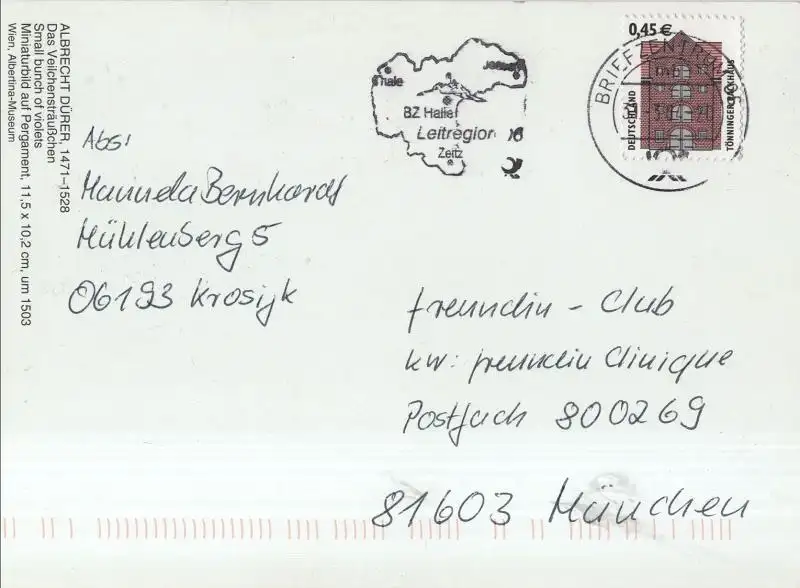 ALBRECHT DÜRER, 1471–1528
Das Veilchensträußchen
Small bunch of violets
Miniaturbild auf Pergament, 11,5 x 10,2 cm, um 1503
Wien, Albertina-Museum
Thale
BZ Halle
Leitregion 06
Zeitz
BRIEFZENTRUM
0,45 €
DEUTSCHLAND
TÖNNINGER PACKHAUS
Abs:
Manuela Bernhardt
Mühlenberg 5
06193 Krosigk
freundin - Club
kw: freundin Clinique
Postfach 800269
81603 München